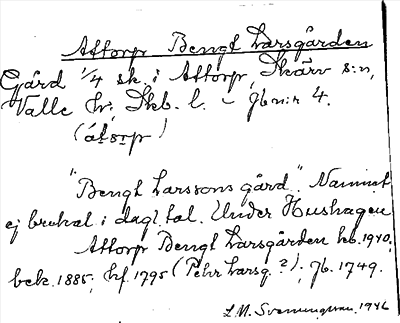 Attorp Bengt Larsgården
Gård 1/4 sk. i Attorp, Skärv s:n,
Valle hr. Skb. l. – Jb n:r 4.
(átorp)
"Bengt Larssons gård". Namnet
ej brukat i dagl. tal. Under Hushagen
Attorp Bengt Larsgården kb. 1940,
bek. 1885; hf. 1795 (Pehr Larsg.?); Jb. 1749.
L. M. Svenungsson, 1946